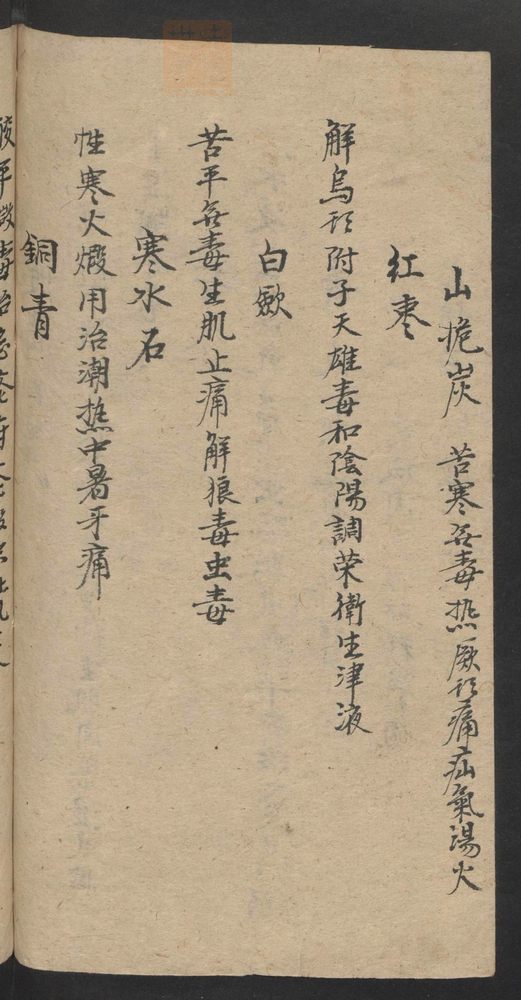 山栀炭 苦寒無毒热厥頭痛疝氣湯火
红棗
解烏頭附子天雄毒和陰陽調荣衛生津液
白蘞
苦平無毒生肌止痛解狼毒虫毒
寒水石
性寒火煅用治潮热中暑牙痛
銅青